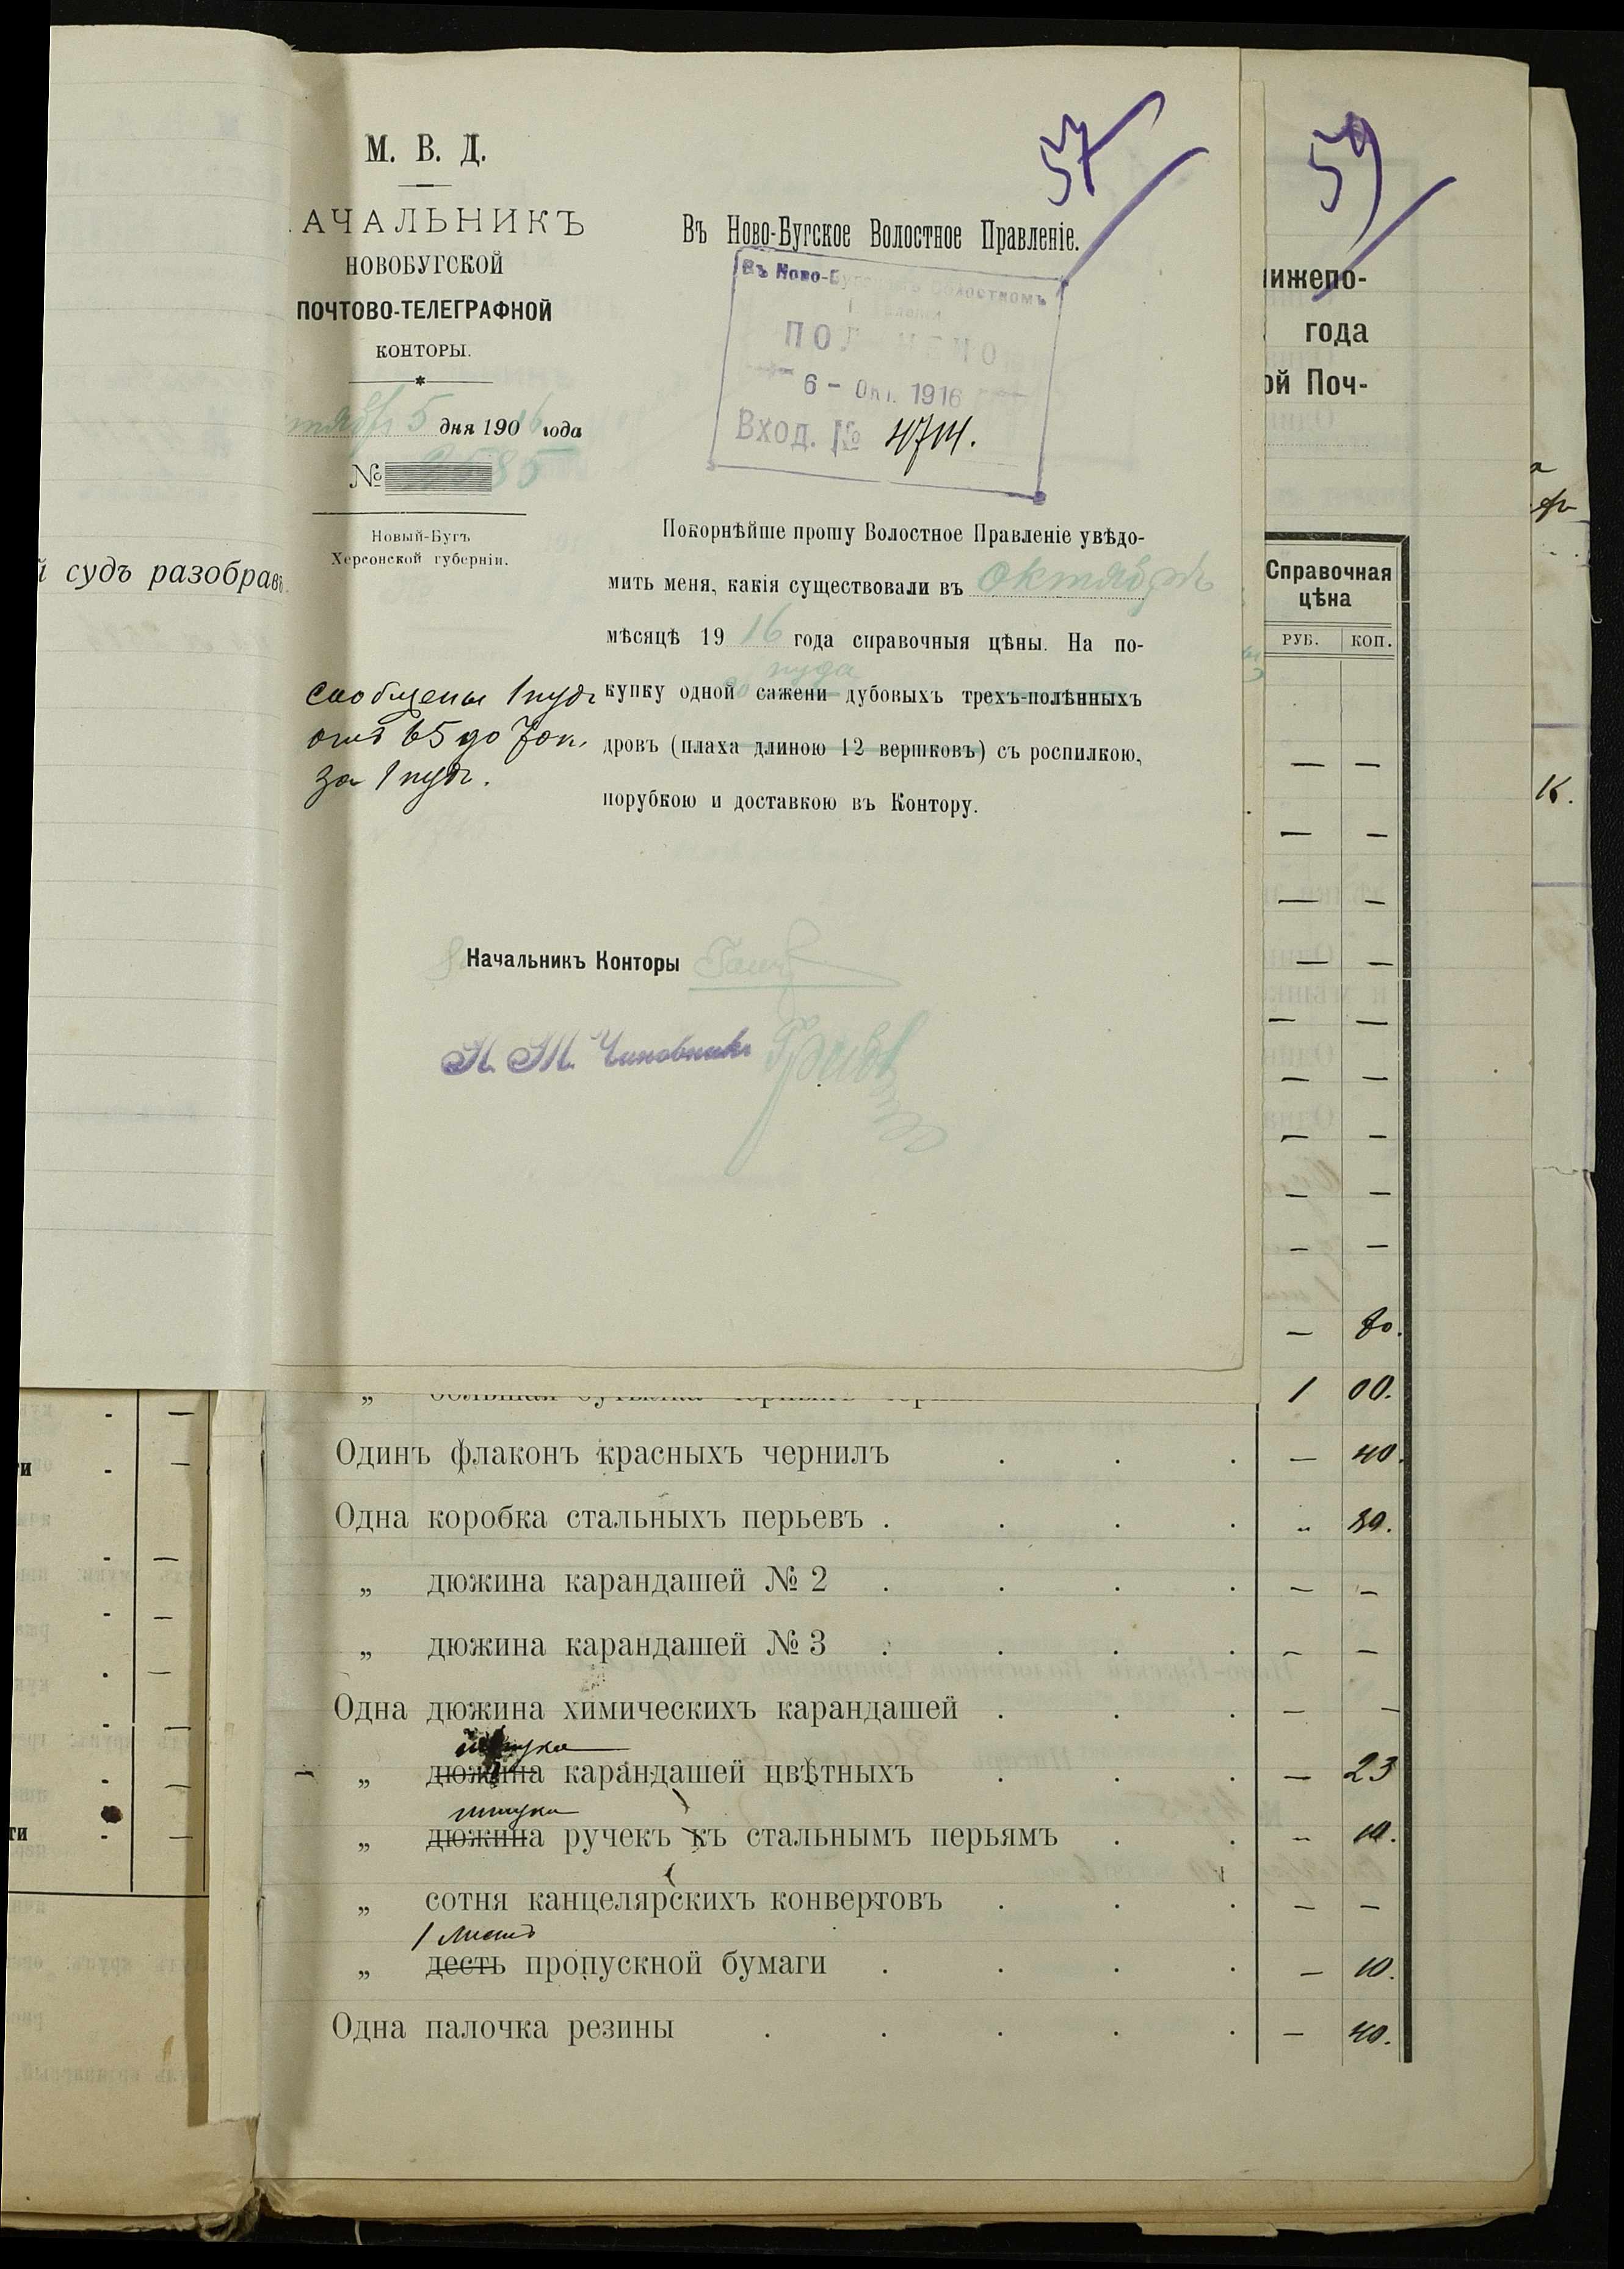 57
М. В. Д.
АЧАЛЬНИКЪ
НОВОБУГСКОЙ
ПОЧТОВО-ТЕЛЕГРАФНОЙ
КОНТОРЫ.
5 дня 1906 года
№ 2585
Новый-Бугъ
Херсонской губерніи.
Въ Ново-Бугское Волостное Правленіе.
Въ Ново-Бугскомъ Волостномъ
ПОЛУЧЕНО
6 - Окт. 1916
Вход. № 4714.
Покорнѣйше прошу Волостное Правленіе увѣдо-
мить меня, какія существовали въ октябрѣ
мѣсяцѣ 1916 года справочныя цѣны. На по-
пуда
купку одной сажени дубовыхъ трехъ-полѣнныхъ
дровъ (плаха длиною 12 вершковъ) съ роспилкою,
порубкою и доставкою въ Контору.
сообщены 1 пудъ
отъ 65 до 70 к.
за 1 пудъ.
Начальникъ Конторы
П. Т. Чиновникъ
й судъ разобрав
59
нижепо-
года
ой Поч-
Справочная
цѣна
РУБ. КОП.
— —
— —
— —
— —
— —
— —
— —
— —
— —
— 80.
„ большая бутылка черныхъ черн 1 00.
Одинъ флаконъ красныхъ чернилъ . . . — 40.
Одна коробка стальныхъ перьевъ . . . . „
„ дюжина карандашей № 2 . . . . — —
„ дюжина карандашей № 3 . . . . — —
Одна дюжина химическихъ карандашей . . . — —
штука
„ дюжина карандашей цвѣтныхъ . . . — 23
штука
„ дюжина ручекъ къ стальнымъ перьямъ . . „ 10.
„ сотня канцелярскихъ конвертовъ . . . — —
1 листъ
„ десть пропускной бумаги . . . . — 10.
Одна палочка резины . . . . . — 40.
ти
ти
к.